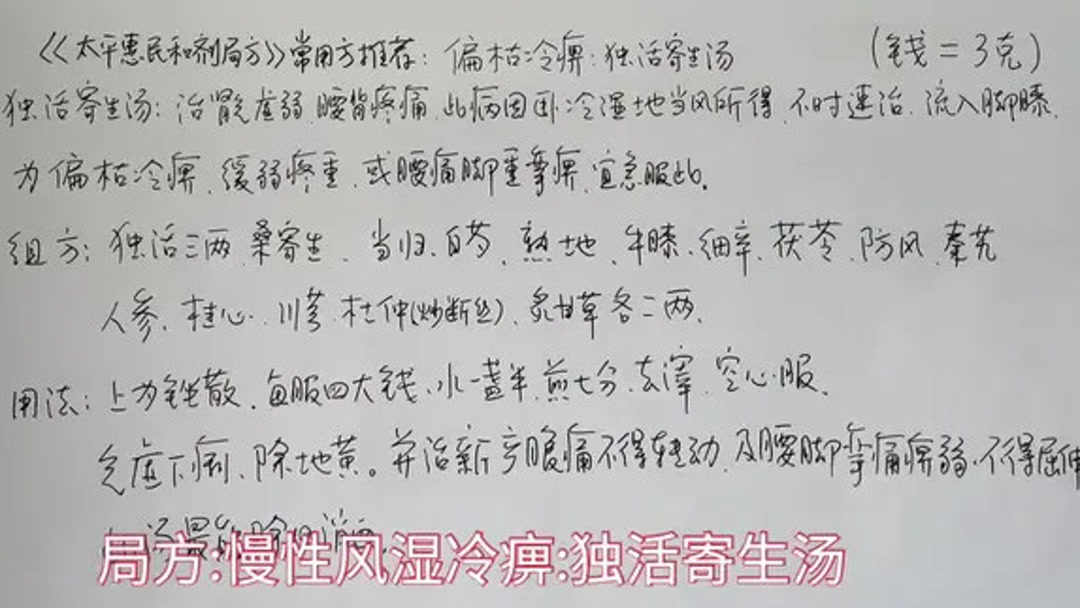 《太平惠民和剂局方》常用方推荐：偏枯冷痹：独活寄生汤 (1钱=3克)
独活寄生汤：治肾虚弱，腰背疼痛，此病因卧冷湿地当风所得，不时速治，流入脚膝，
为偏枯冷痹，缓弱疼重，或腰痛脚重挛痹，宜急服此。
组方：独活三两，桑寄生、当归、白芍、熟地、牛膝、细辛、茯苓、防风、秦艽
人参、桂心、川芎、杜仲(炒断丝)、炙甘草各二两。
用法：上为锉散，每服四大钱，水一盏半，煎七分，去滓，空心服。
气虚下利，除地黄。并治新产腹痛不得转动，及腰脚挛痛痹弱，不得屈伸
汤最能除风消
局方:慢性风湿冷痹:独活寄生汤